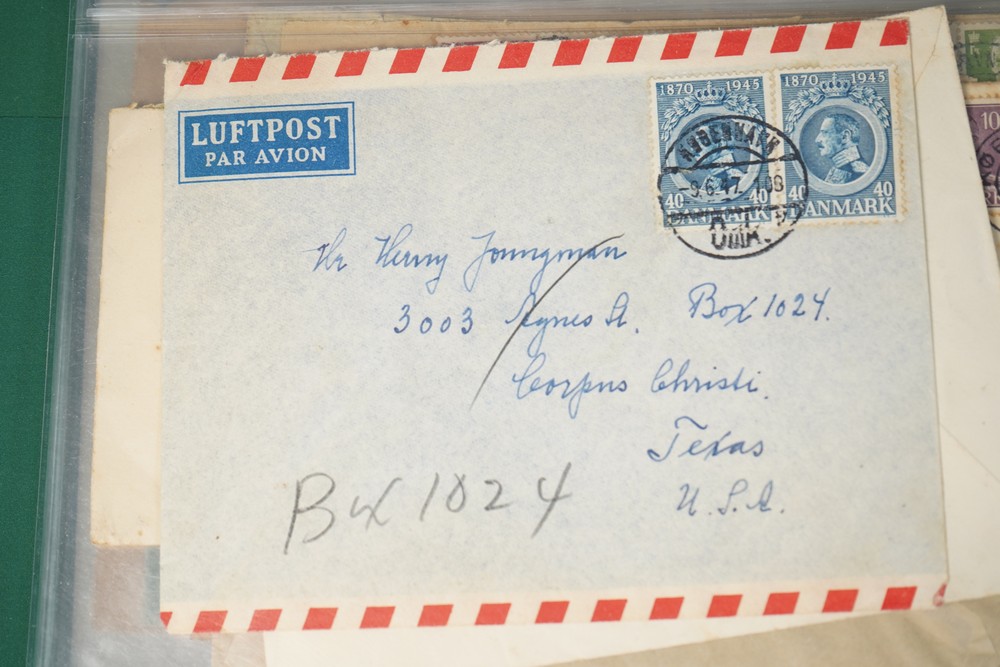 LUFTPOST
PAR AVION
1870 1945
1870 1945
KØBENHAVN
-9.6.47.
40 40
DANMARK
40 40
DANMARK
OMK.
Hr Henry Joungman
3003 Agnes St. Box 1024.
Corpus Christi.
Texas
U.S.A.
Box 1024
10